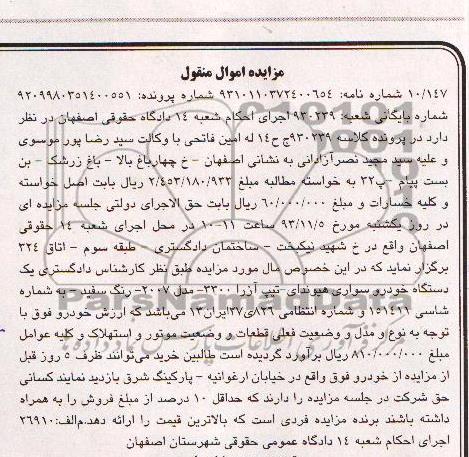 مزایده اموال منقول
۱۰/۱۴۷ شماره نامه: ۹۳۱۰۱۱۰۳۷۲۴۰۰۶۵۴ شماره پرونده: ۹۲۰۹۹۸۰۳۵۱۴۰۰۵۵۱
شماره بایگانی شعبه: ۹۳۰۲۳۹ اجرای احکام شعبه ۱۴ دادگاه حقوقی اصفهان در نظر
دارد در پرونده کلاسه ۹۳۰۲۳۹ج ح۱۴ له امین فاتحی با وکالت سید رضا پور موسوی
و علیه سید مجید نصرآزادانی به نشانی اصفهان - خ چهارباغ بالا - باغ زرشک - بن
بست پیام -پ۳۲ به خواسته مطالبه مبلغ ۲/۴۵۳/۱۸۰/۹۳۳ ریال بابت اصل خواسته
و کلیه خسارات و مبلغ ۶۰/۰۰۰/۰۰۰ ریال بابت حق الاجرای دولتی جلسه مزایده ای
در روز یکشنبه مورخ ۹۳/۱۱/۵ ساعت ۱۱-۱۰ در محل اجرای شعبه ۱۴ حقوقی
اصفهان واقع در خ شهید نیکبخت - ساختمان دادگستری - طبقه سوم - اتاق ۳۲۴
برگزار نماید که در این خصوص مال مورد مزایده طبق نظر کارشناس دادگستری یک
دستگاه خودرو سواری هیوندای -تیپ آزرا ۳۳۰۰- مدل ۲۰۰۷- رنگ سفید- به شماره
شاسی ۱۵۱۴۱۱ و شماره انتظامی ۸۳۶ی۳۷ایران۱۳ می‌باشد که ارزش خودرو فوق با
توجه به نوع و مدل و وضعیت فعلی قطعات و وضعیت موتور و استهلاک و کلیه عوامل
مبلغ ۸۱۰/۰۰۰/۰۰۰ ریال برآورد گردیده است طالبین خرید می‌توانند ظرف ۵ روز قبل
از مزایده از خودرو فوق واقع در خیابان ارغوانیه - پارکینگ شرق بازدید نمایند کسانی
حق شرکت در جلسه مزایده را دارند که حداقل ۱۰ درصد از مبلغ فروش را به همراه
داشته باشند برنده مزایده فردی است که بالاترین قیمت را ارائه دهد.م‌الف:۲۶۹۱۰
اجرای احکام شعبه ۱۴ دادگاه عمومی حقوقی شهرستان اصفهان
ParsNamadData